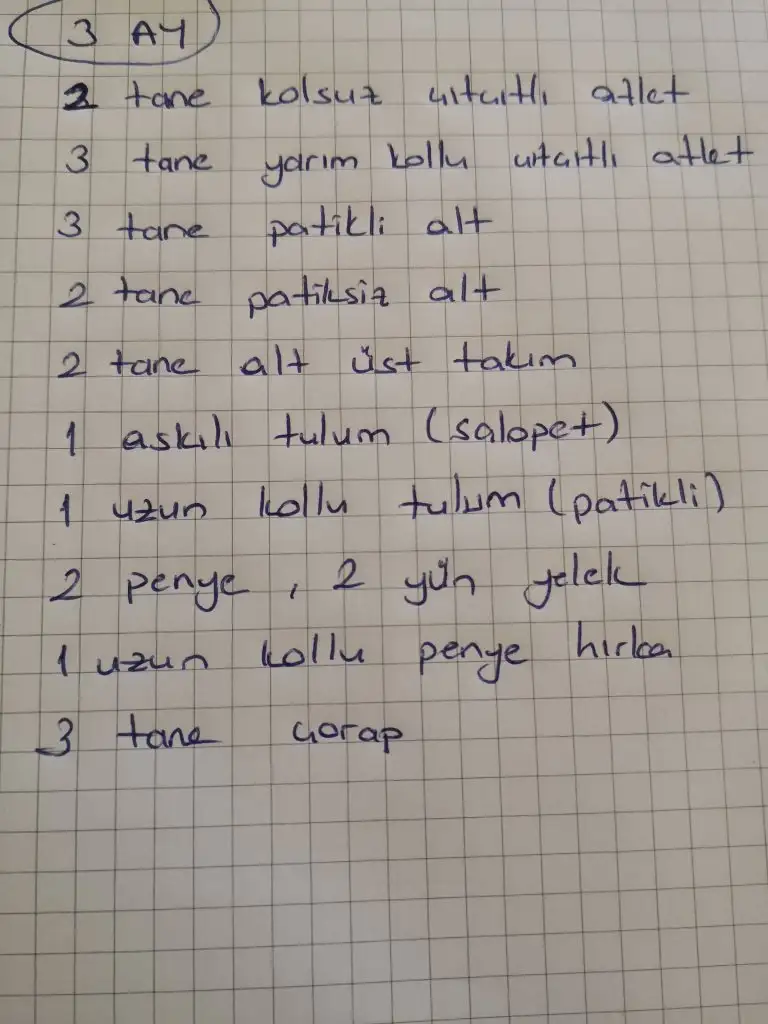 3 AY
2 tane kolsuz çıtçıtlı atlet
3 tane yarım kollu çıtçıtlı atlet
3 tane patikli alt
2 tane patiksiz alt
2 tane alt üst takım
1 askılı tulum (salopet)
1 uzun kollu tulum (patikli)
2 penye, 2 yün yelek
1 uzun kollu penye hırka
3 tane çorap